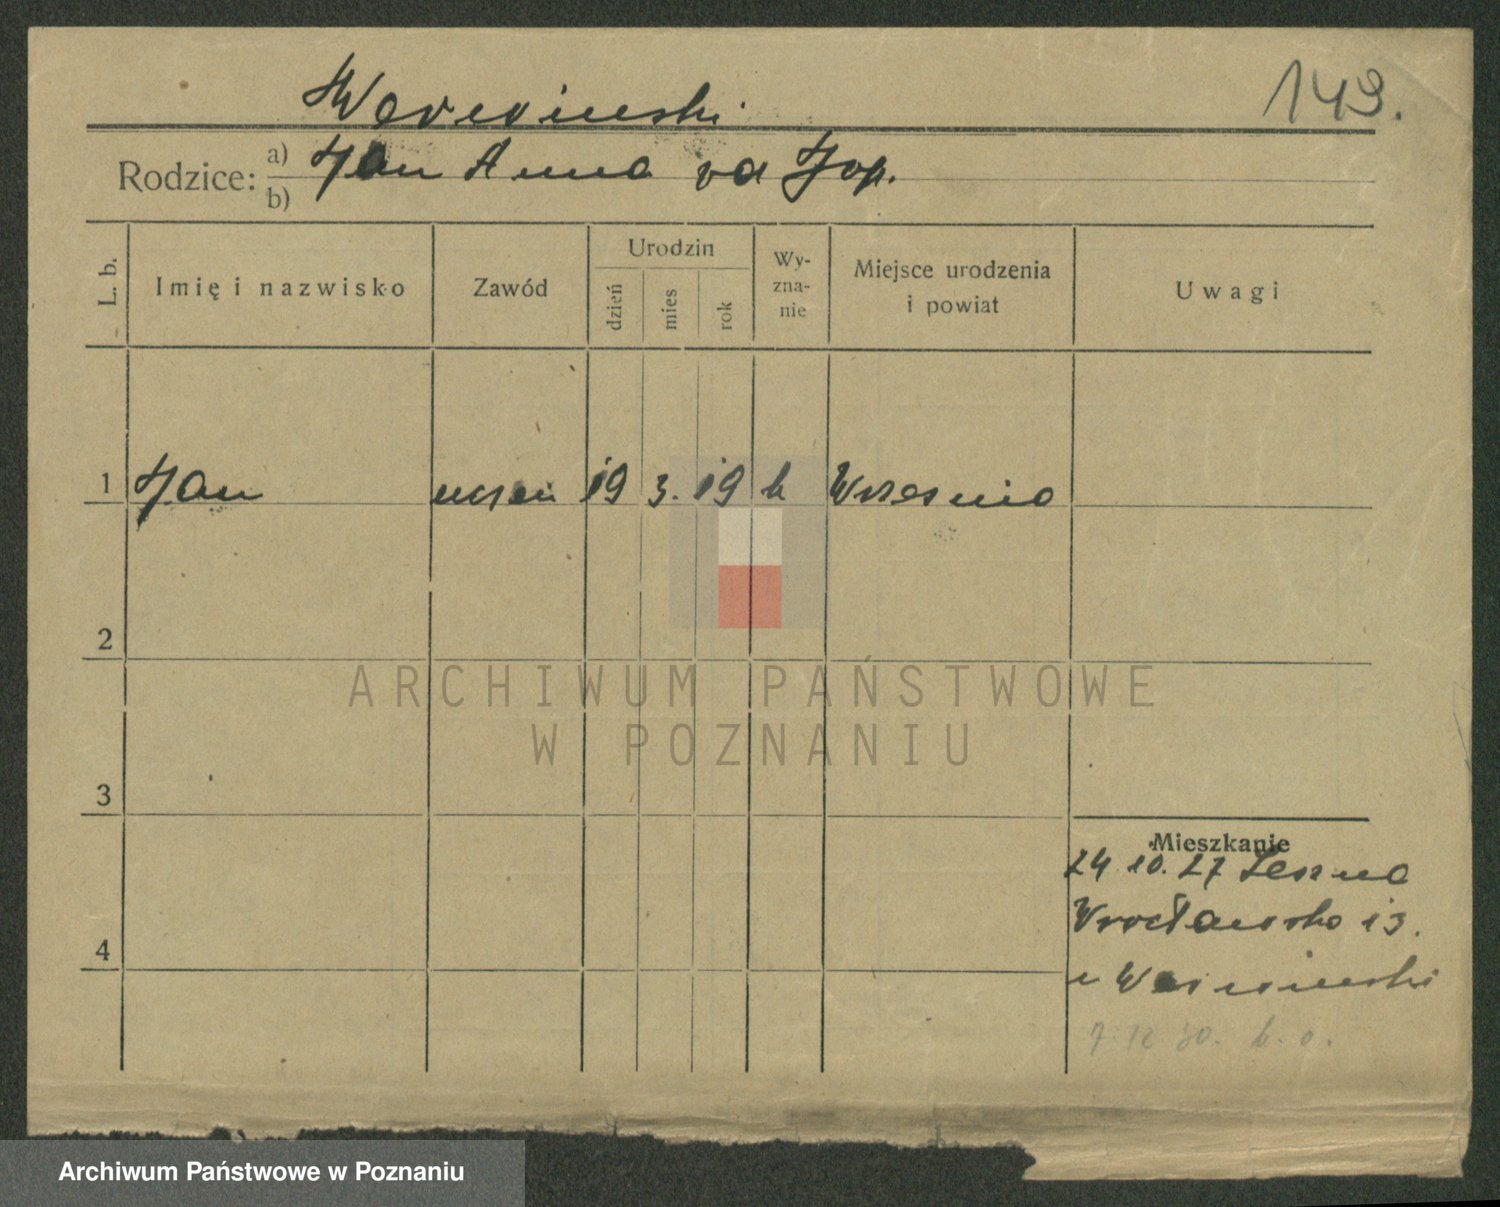 143.
Rodzice: a) Jan Anna
b)
L. b.
Imię i nazwisko
Zawód
Urodzin
dzień
mies
rok
Wy-
zna-
nie
Miejsce urodzenia
i powiat
Uwagi
1 Jan uczeń 19 3. 19 k Września
2
ARCHIWUM PAŃSTWOWE
W POZNANIU
3
Mieszkanie
24 10. 27 Leszna
Wrocławska 13.
4
7.12 30. b. o.
Archiwum Państwowe w Poznaniu